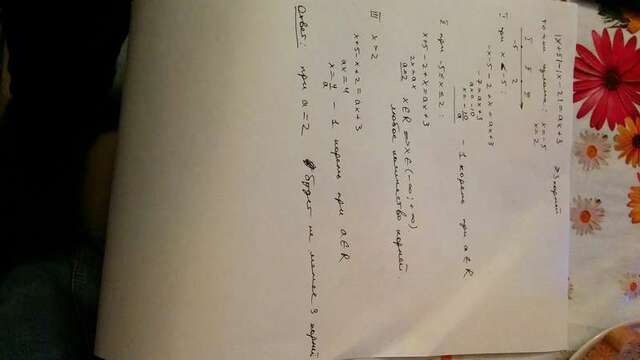 |x+5|-|x-2|=ax+3 ≥3 корней
точки нуля: x=-5
x=2
I II III
-5 2
I при x<-5:
-x-5-2+x=ax+3
-7=ax+3
ax=-10
x=-10/a - 1 корень при a∈R
II при -5≤x≤2:
x+5-2+x=ax+3
2x=ax
a=2 x∈R ⇔ x∈(-∞;+∞)
любое количество корней.
III x>2
x+5-x+2=ax+3
ax=4
x=4/a - 1 корень при a∈R
Ответ: при a=2 будет не менее 3 корней